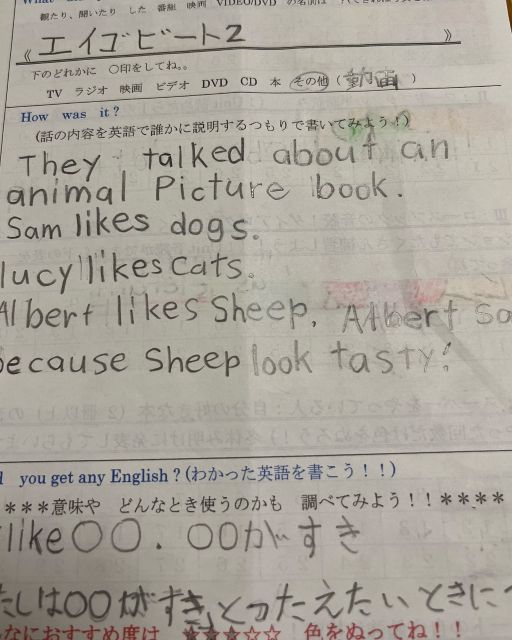 観たり、聞いたり した 番組 映画 VIDEO/DVD の名前は
《エイゴビート2》
下のどれかに ○印をしてね。。
TV ラジオ 映画 ビデオ DVD CD 本 その他(動画)
How was it?
(話の内容を英語で誰かに説明するつもりで書いてみよう!)
They talked about an
animal Picture book.
Sam likes dogs.
lucy likes cats.
Albert likes Sheep. Albert sa
because sheep look tasty!
you get any English?(わかった英語を書こう!!)
***意味や どんなとき使うのかも 調べてみよう!!****
like○○. ○○がすき
たしは○○がすき。とつたえたいときに
なにおすすめ度は ★★★☆☆ 色をぬってね!!